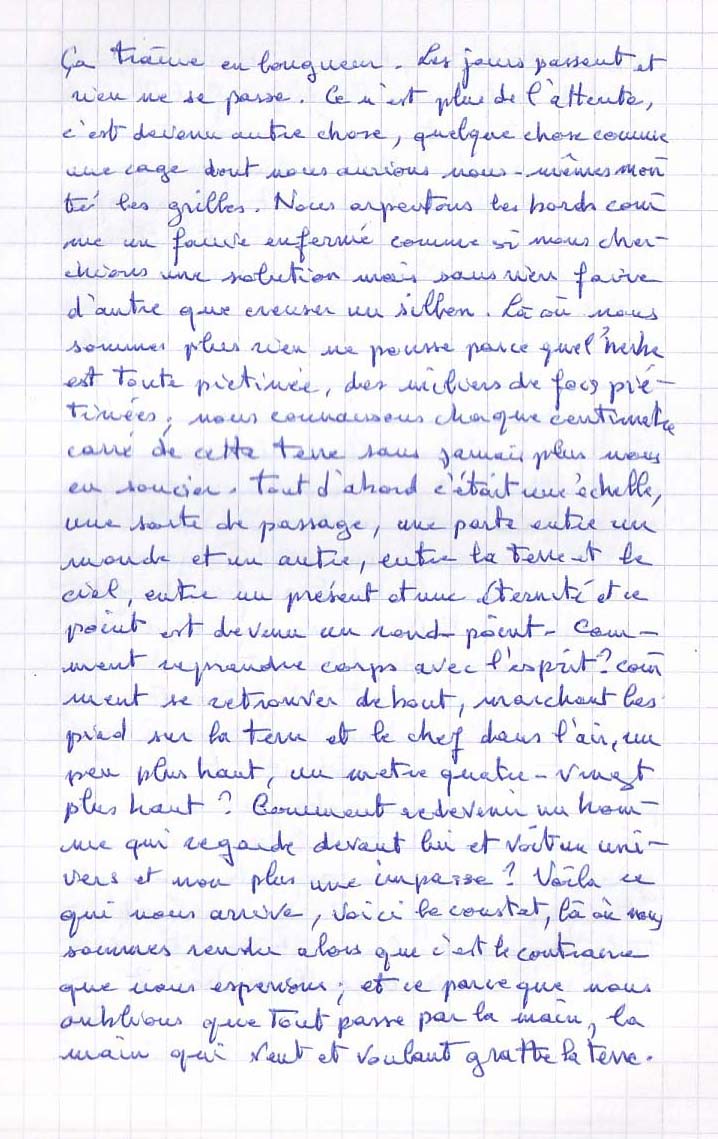 Ça traîne en longueur. Les jours passent et
rien ne se passe. Ce n'est plus de l'attente,
c'est devenu autre chose, quelque chose comme
une cage dont nous aurions nous-mêmes mon
té les grilles. Nous arpentons les bords com
me un fauve enfermé comme si nous cher-
chions une solution mais sans rien faire
d'autre que creuser un sillon. Là où nous
sommes plus rien ne pousse parce que l'herbe
est toute piétinée, des milliers de fois pié-
tinées ; nous connaissons chaque centimètre
carré de cette terre sans jamais plus nous
en soucier. Tout d'abord c'était une échelle,
une sorte de passage, une porte entre un
monde et un autre, entre la terre et le
ciel, entre un présent et une éternité et ce
point est devenu un rond-point. Com-
ment reprendre corps avec l'esprit ? com
ment se retrouver debout, marchant les
pied sur la terre et le chef dans l'air, un
peu plus haut, un mètre quatre-vingt
plus haut ? Comment redevenir un hom-
me qui regarde devant lui et voit un uni-
vers et non plus une impasse ? Voilà ce
qui nous arrive, voici le constat, là où nous
sommes rendu alors que c'est le contraire
que nous espérions ; et ce parce que nous
oublions que tout passe par la main, la
main qui veut et voulant gratte la terre.